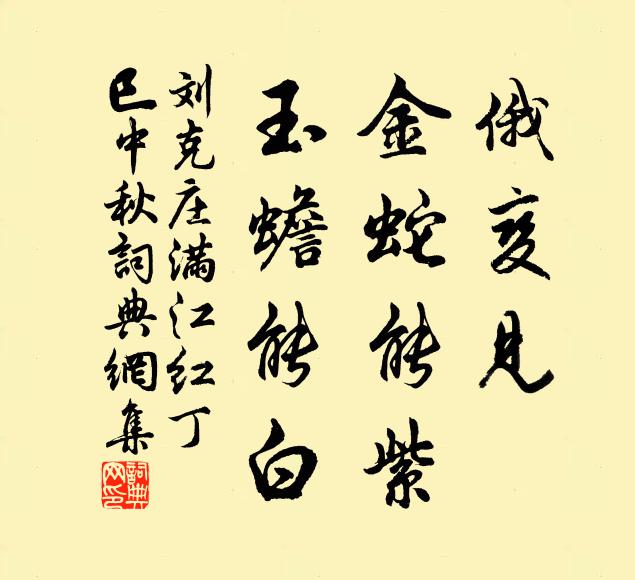 俄变见
金蛇能紫
玉蟾能白
刘克庄满江红丁
巳中秋詞典網集
詞典网印